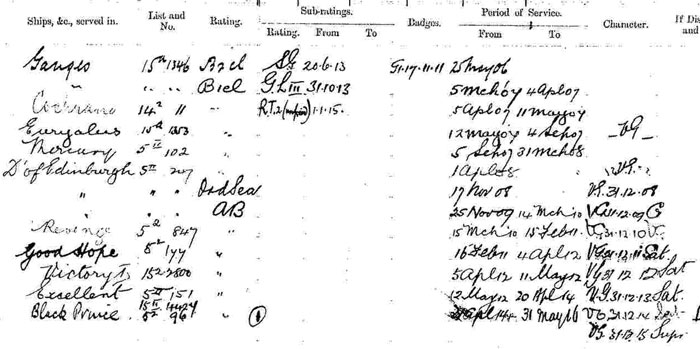 Ships, &c., served in. List and No. Rating. Sub-ratings. Badges. Period of Service. Character. If Dis and
Rating. From To From To
Ganges 15a 1346 B2cl SG 20·6·13 G1·17·11·11 25 May 06
" " B1cl G.L III 31·10·13 5 Mch 07 4 Apl 07
Cochrane 14a 11 " R.T.2 1·1·15· 5 Apl 07 11 May 07
Euryalus 15a 1353 " 12 May 07 4 Sep 07 VG
Mercury 5 II 102 " 5 Sep 07 31 Mch 08
D' of Edinburgh 5 II 207 " 1 Apl 08 V.G.
" " Ord Sea 19 Nov 08 V.G. 31·12·08
" AB 25 Nov 09 14 Mch 10 VG 31·12·09 G
Revenge 5a 847 " 15 Mch 10 15 Feb 11 VG 31·12·10 VG
Good Hope 5a 177 " 16 Feb 11 4 Apl 12 VG 31·12·11 Sat.
Victory I 15a 2800 " 5 Apl 12 11 May 12 VG 31 12 12 Sat
Excellent 5 II 151 " 12 May 12 20 Apl 14 V.G 31·12·13 Sat.
Black Prince 5a 96 " 21 Apl 14 31 May 16 VG 31·12·14 Sat
VG 31·12·15 Supr